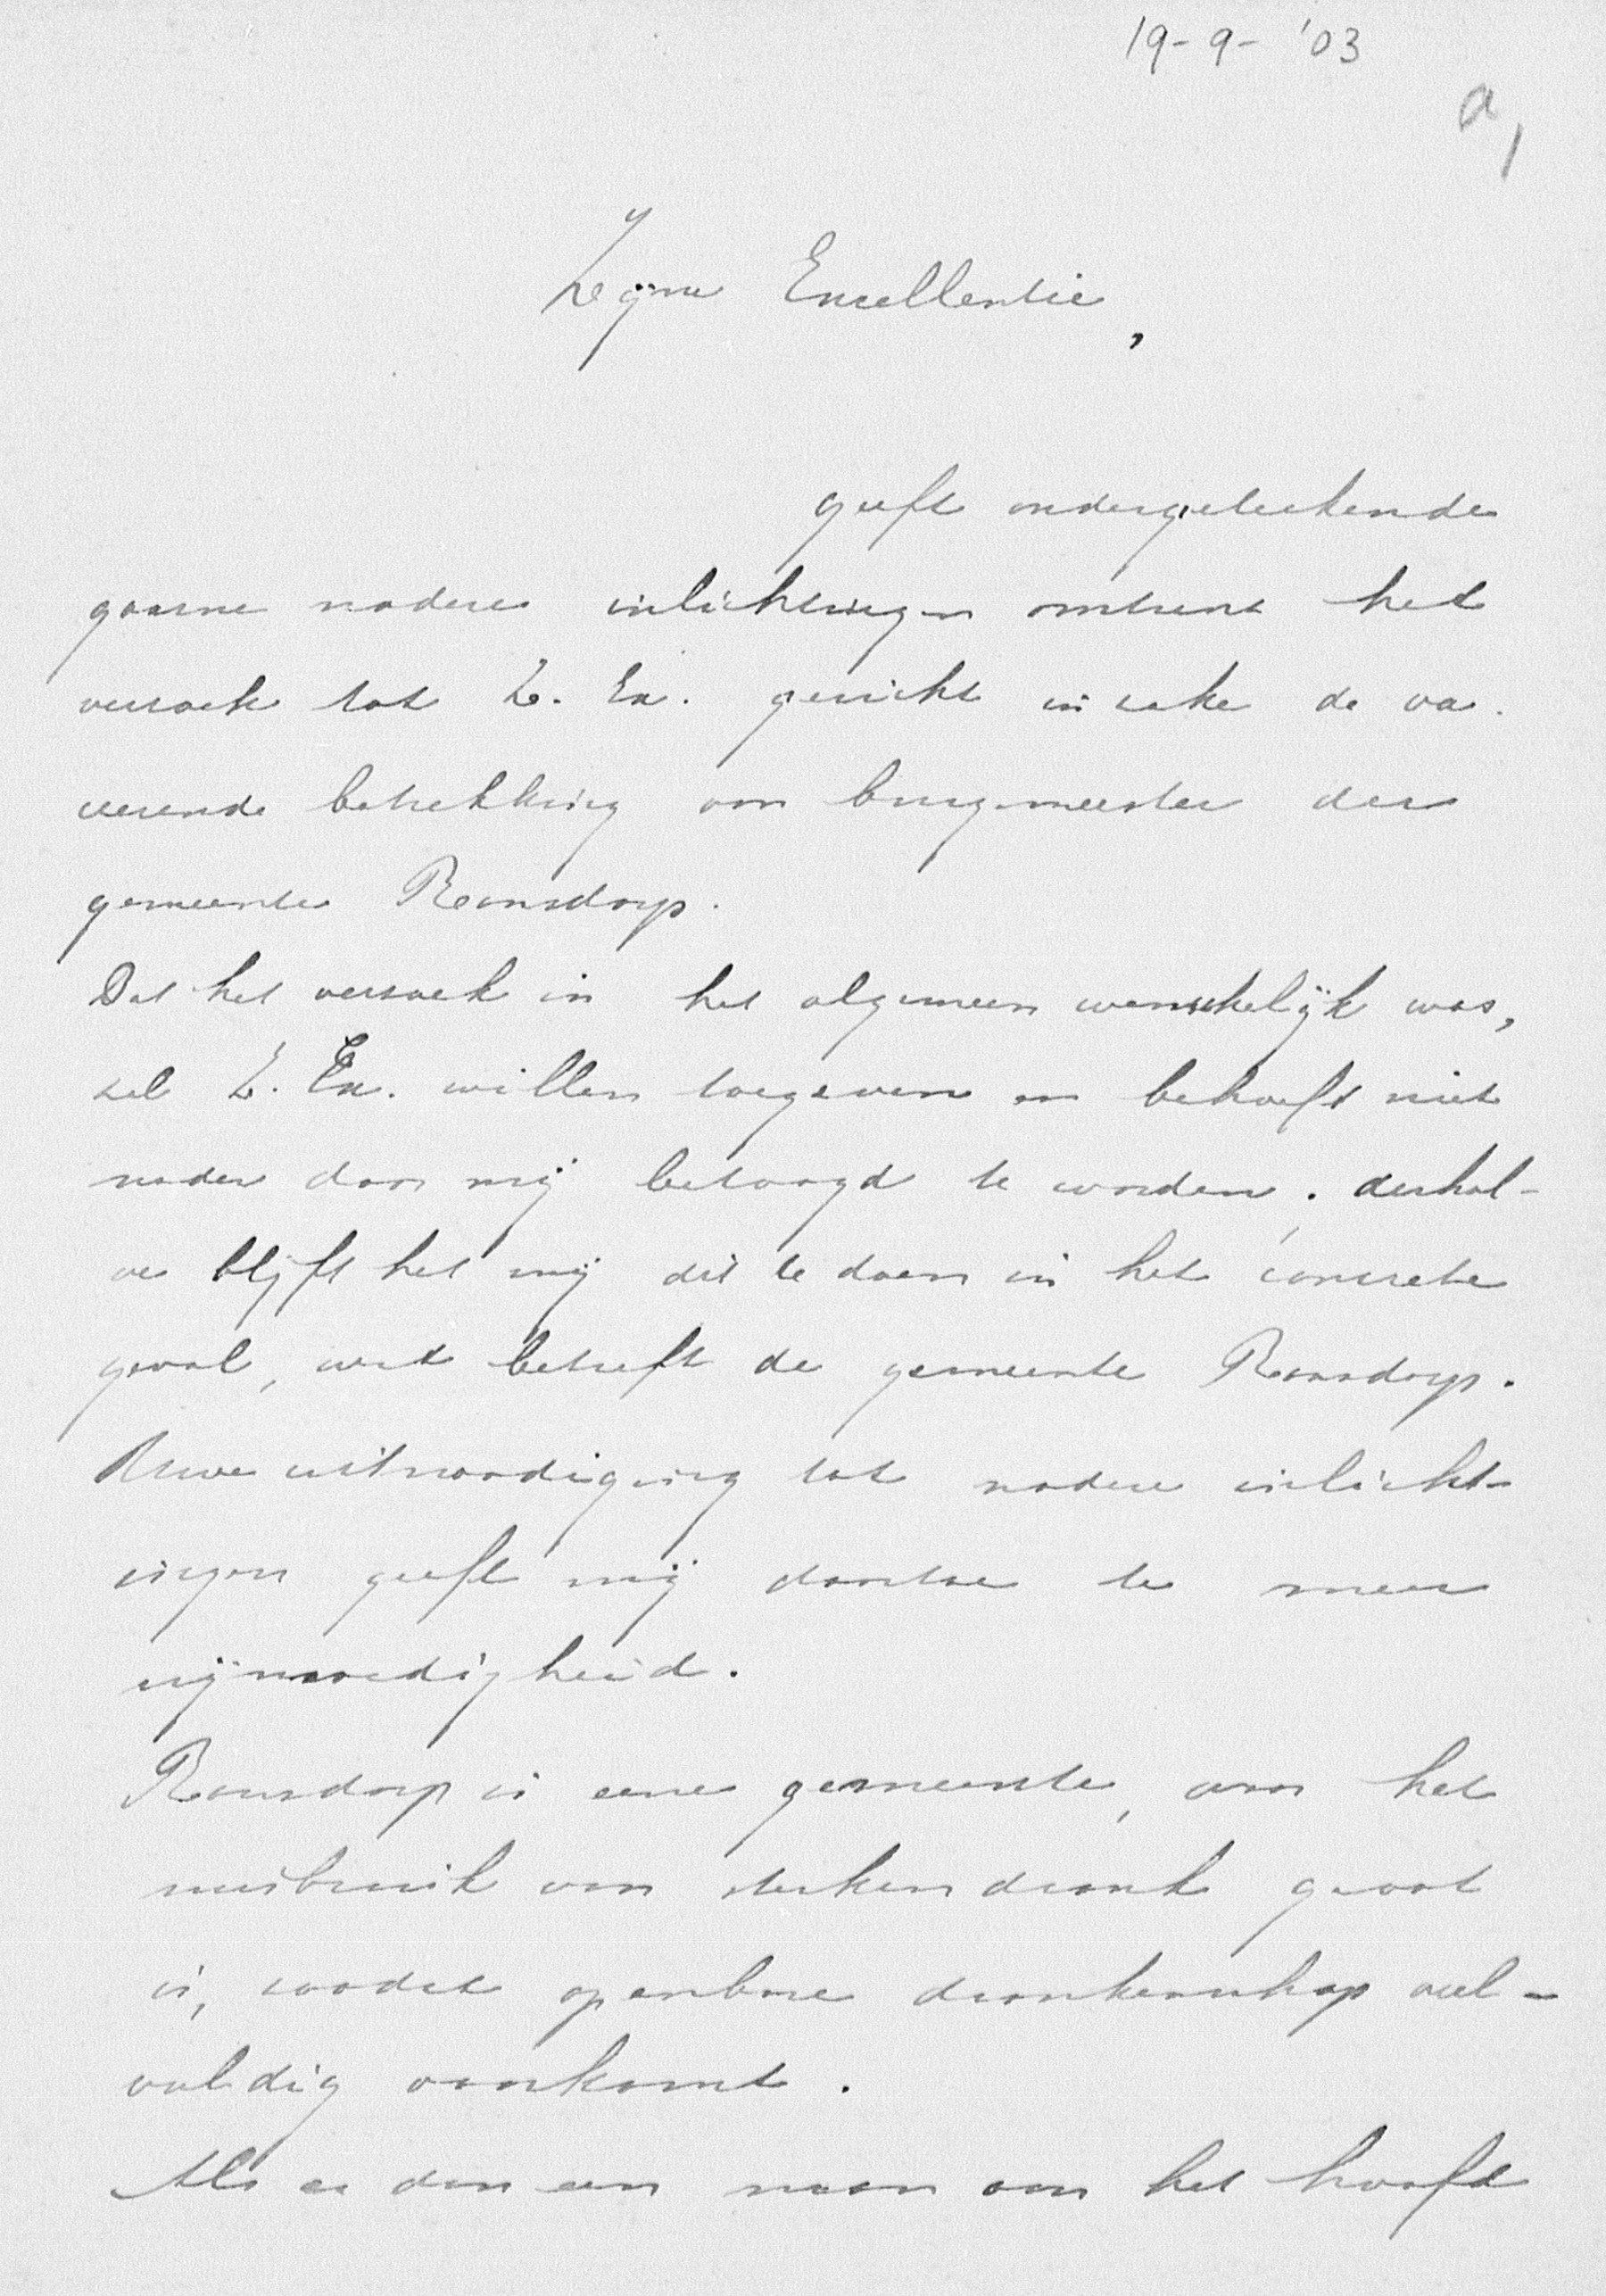 19-9-'03
a,
Zijne Excellentie,
geeft ondergeteekende
gaarne nadere inlichtingen omtrent het
verzoek tot Z. Ex. gericht in zake de va-
cerende betrekking van burgemeester der
gemeente Ransdorp.
Dat het verzoek in het algemeen wenschelijk was,
zal Z. Ex. willen toegeven en behoeft niet
nader door mij betoogd te worden; derhal-
ve blijft het mij dit te doen in het concrete
geval, wat betreft de gemeente Ransdorp.
Uwe uitnoodiging tot nadere inlicht-
ingen geeft mij daartoe te meer
vrijmoedigheid.
Ransdorp is eene gemeente, waar het
misbruik van sterken drank groot
is, zoodat openbare dronkenschap veel-
vuldig voorkomt.
Als er dan een man aan het hoofd